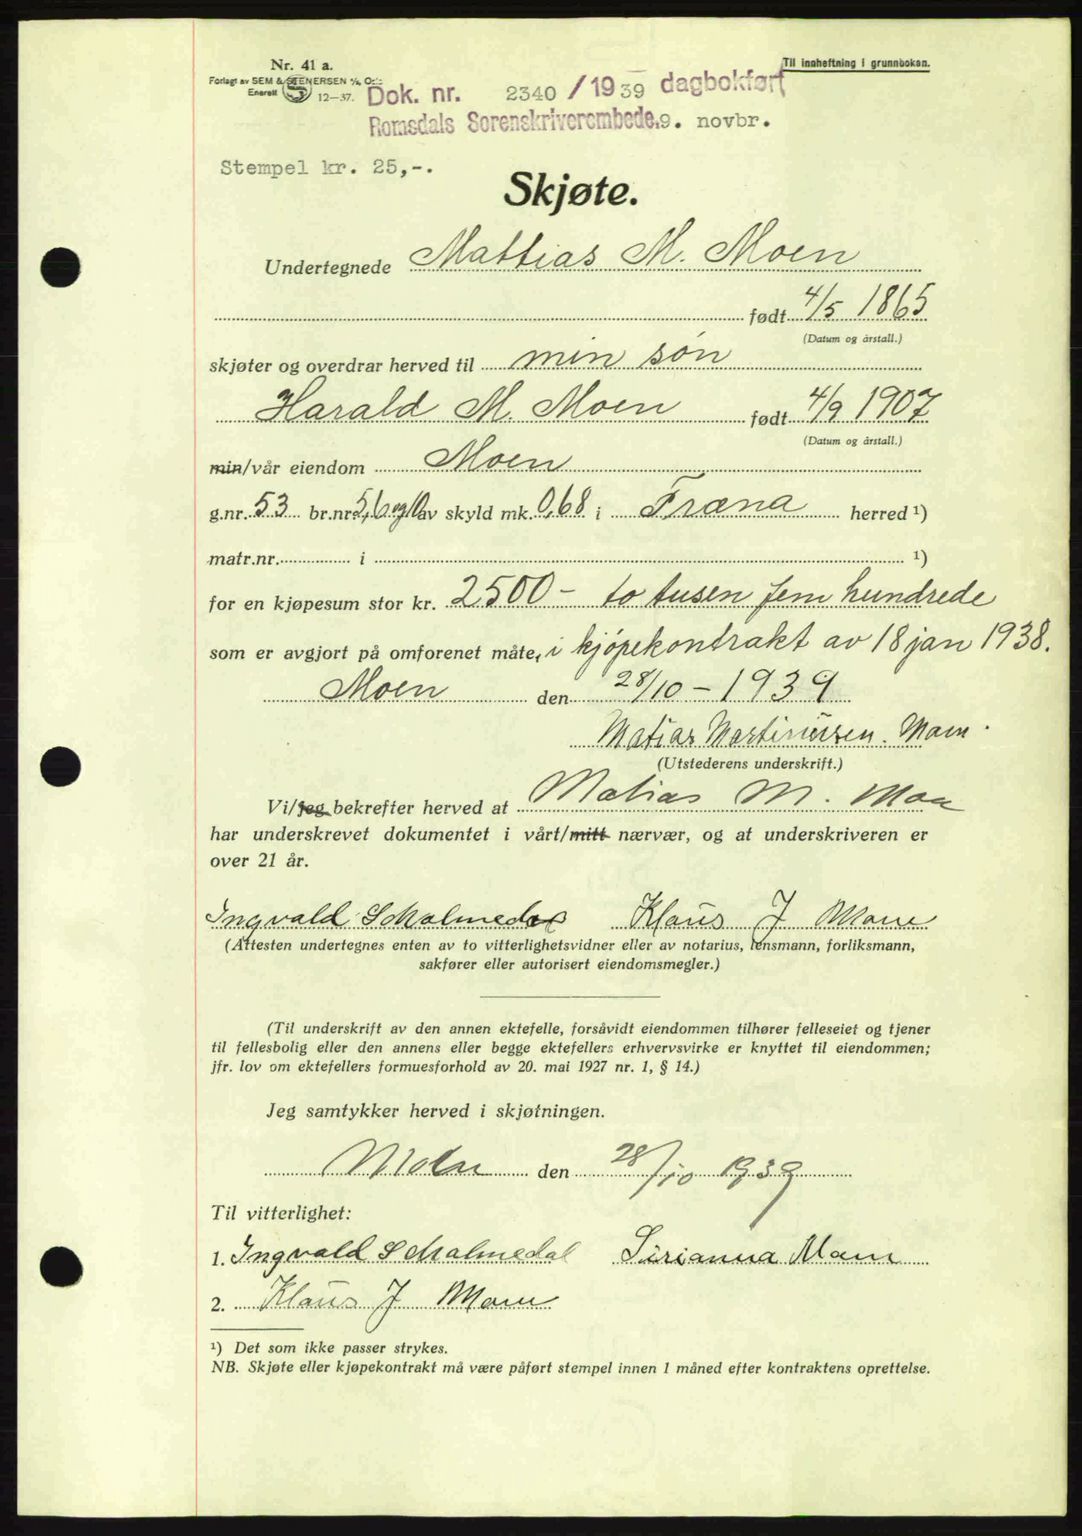 Nr. 41 a.
Til innheftning i grunnboken.
Forlagt av SEM & STENERSEN A/S, Oslo
Enerett 12—37.
Dok. nr. 2340 / 1939 dagbokført
Romsdals Sorenskriverembede, 9. novbr.
Stempel kr. 25,-.
Skjøte.
Undertegnede Mattias M. Moen
født 4/5 1865
(Datum og årstall.)
skjøter og overdrar herved til min søn
Harald M. Moen født 4/9 1907
(Datum og årstall.)
min/vår eiendom Moen
g.nr. 53 br.nr. 5,6 og 10 av skyld mk. 0,68 i Fræna herred ¹)
matr.nr. i ¹)
for en kjøpesum stor kr. 2500 - to tusen fem hundrede
som er avgjort på omforenet måte, i kjøpekontrakt av 18 jan 1938.
Moen den 28/10 - 1939
Matias Martinusen. Moen.
(Utstederens underskrift.)
Vi/jeg bekrefter herved at Matias M. Moen
har underskrevet dokumentet i vårt/mitt nærvær, og at underskriveren er
over 21 år.
Ingvald Skalmedal Klaus J Moen
(Attesten undertegnes enten av to vitterlighetsvidner eller av notarius, lensmann, forliksmann,
sakfører eller autorisert eiendomsmegler.)
(Til underskrift av den annen ektefelle, forsåvidt eiendommen tilhører felleseiet og tjener
til fellesbolig eller den annens eller begge ektefellers erhvervsvirke er knyttet til eiendommen;
jfr. lov om ektefellers formuesforhold av 20. mai 1927 nr. 1, § 14.)
Jeg samtykker herved i skjøtningen.
Moen den 28/10 1939
Til vitterlighet:
1. Ingvald Skalmedal Sirianna Moen
2. Klaus J Moen
¹) Det som ikke passer strykes.
NB. Skjøte eller kjøpekontrakt må være påført stempel innen 1 måned efter kontraktens oprettelse.